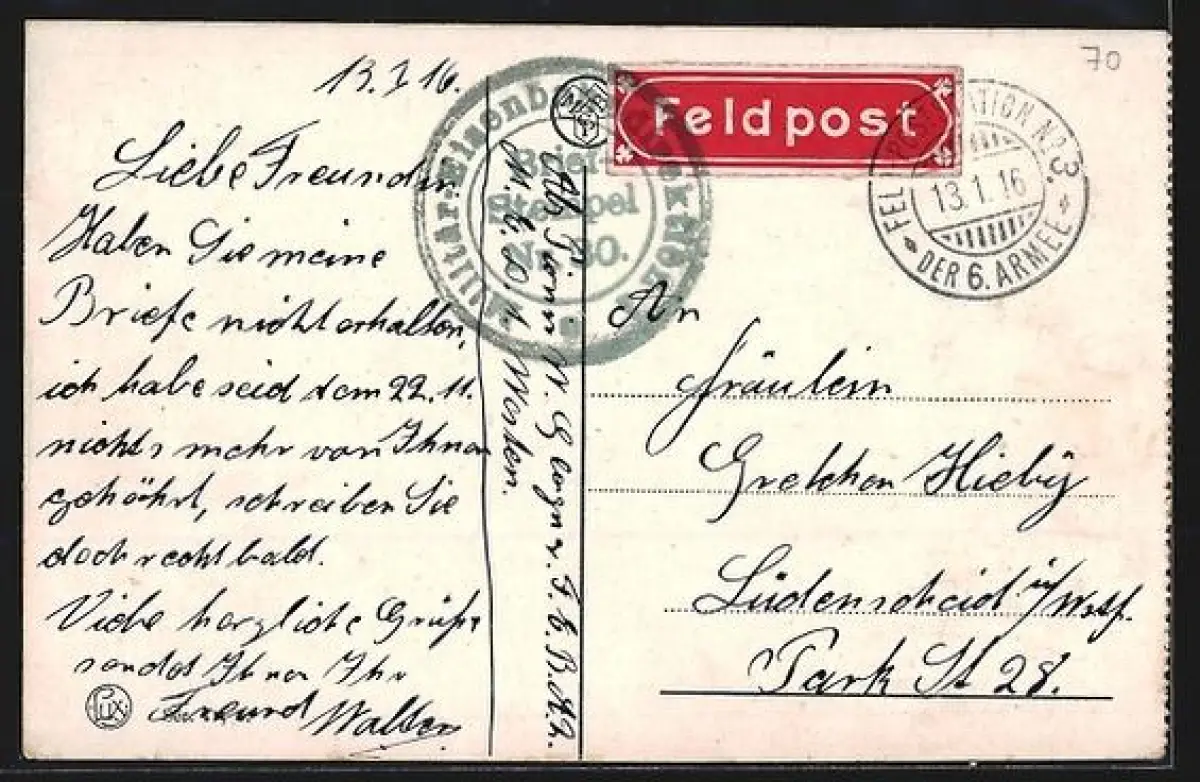 13.1.16.
Liebe Freundin
Haben Sie meine
Briefe nicht erhalten,
ich habe seid dem 22.11.
nichts mehr von Ihnen
gehöhrt, schreiben Sie
doch recht bald.
Viele herzliche Grüße
sendet Ihnen Ihr
Freund Walter
Lux
Abs. Pionn W.
Militär-Eisenbahn-Direktion
Brief-
Stempel
No. 80.
Feldpost
FELDPOSTSTATION No 3.
13.1.16
DER 6. ARMEE
70
An
Fräulein
Gretchen
Lüdenscheid i/Westf.
Park St 28.